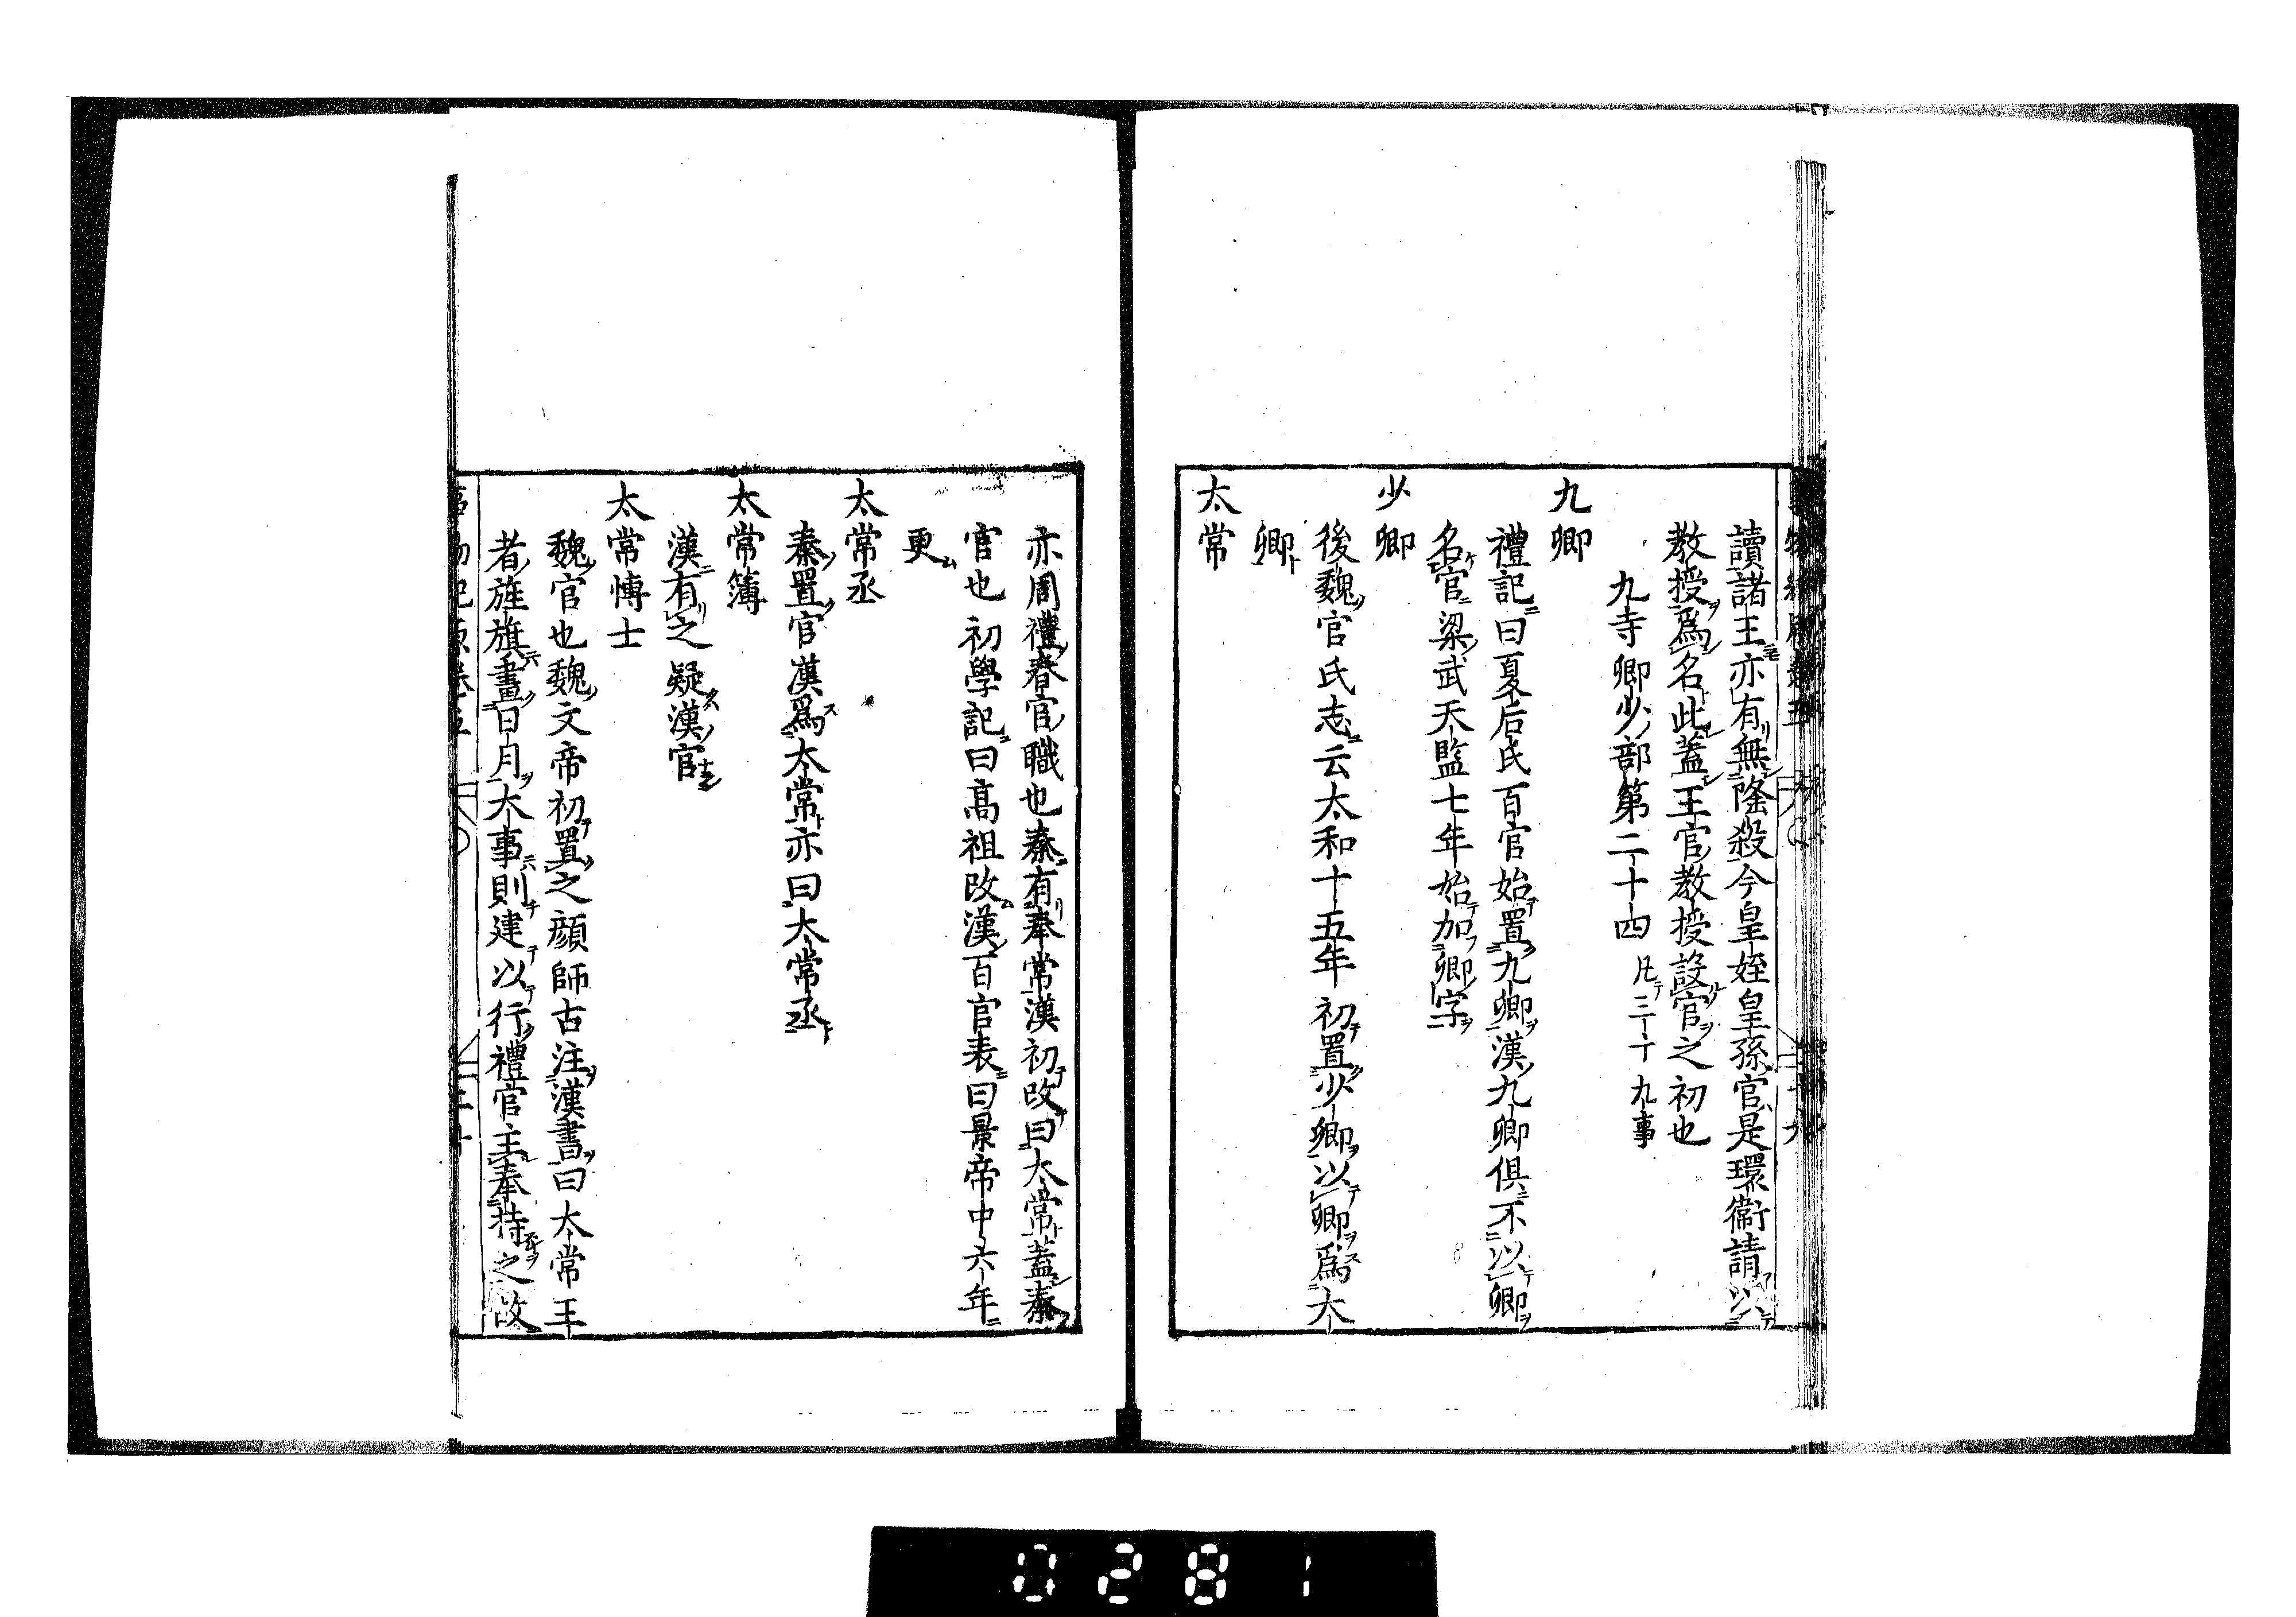 讀諸王亦有無隆殺今皇姪皇孫官是環衞請以
教授爲名此蓋王官教授設官之初也
九寺卿少部第二十四 凡三十九事
九卿
禮記曰夏后氏百官始置九卿漢九卿俱不以卿
名官梁武天監七年始加卿字
少卿
後魏官氏志云太和十五年初置少卿以卿爲大
卿
太常
亦周禮春官職也秦有奉常漢初改曰大常蓋秦
官也初學記曰高祖改漢百官表曰景帝中六年
更
太常丞
秦置官漢爲太常亦曰大常丞
太常簿
漢有之疑漢官
太常博士
魏官也魏文帝初置之顔師古注漢書曰太常王
者旌旗畫日月大事則建以行禮官主奉持之故
0281